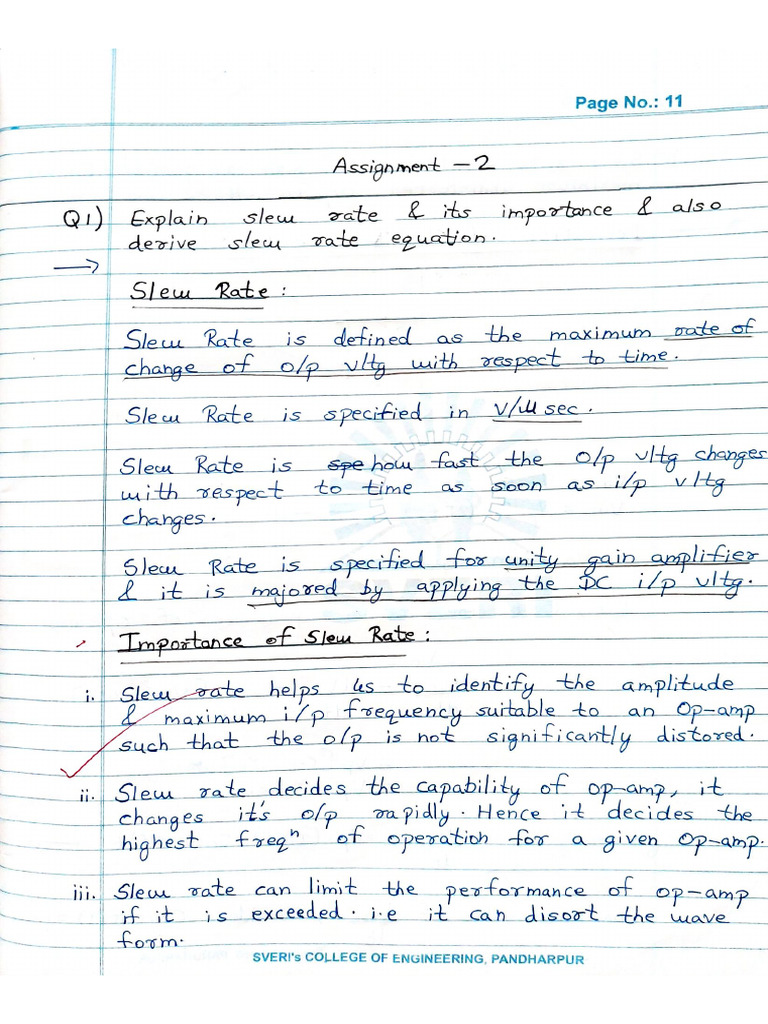 Page No.: 11
Assignment - 2
Q1) Explain slew rate & its importance & also
derive slew rate equation.
Slew Rate :
Slew Rate is defined as the maximum rate of
change of o/p vltg with respect to time.
Slew Rate is specified in V/μ sec.
Slew Rate is spe how fast the o/p vltg changes
with respect to time as soon as i/p vltg
changes.
Slew Rate is specified for unity gain amplifier
& it is majored by applying the DC i/p vltg.
Importance of Slew Rate :
i. Slew rate helps us to identify the amplitude
& maximum i/p frequency suitable to an Op-amp
such that the o/p is not significantly distored.
ii. Slew rate decides the capability of op-amp, it
changes it's o/p rapidly. Hence it decides the
highest freqⁿ of operation for a given Op-amp.
iii. Slew rate can limit the performance of op-amp
if it is exceeded. i.e it can disort the wave
form.
SVERI's COLLEGE OF ENGINEERING, PANDHARPUR